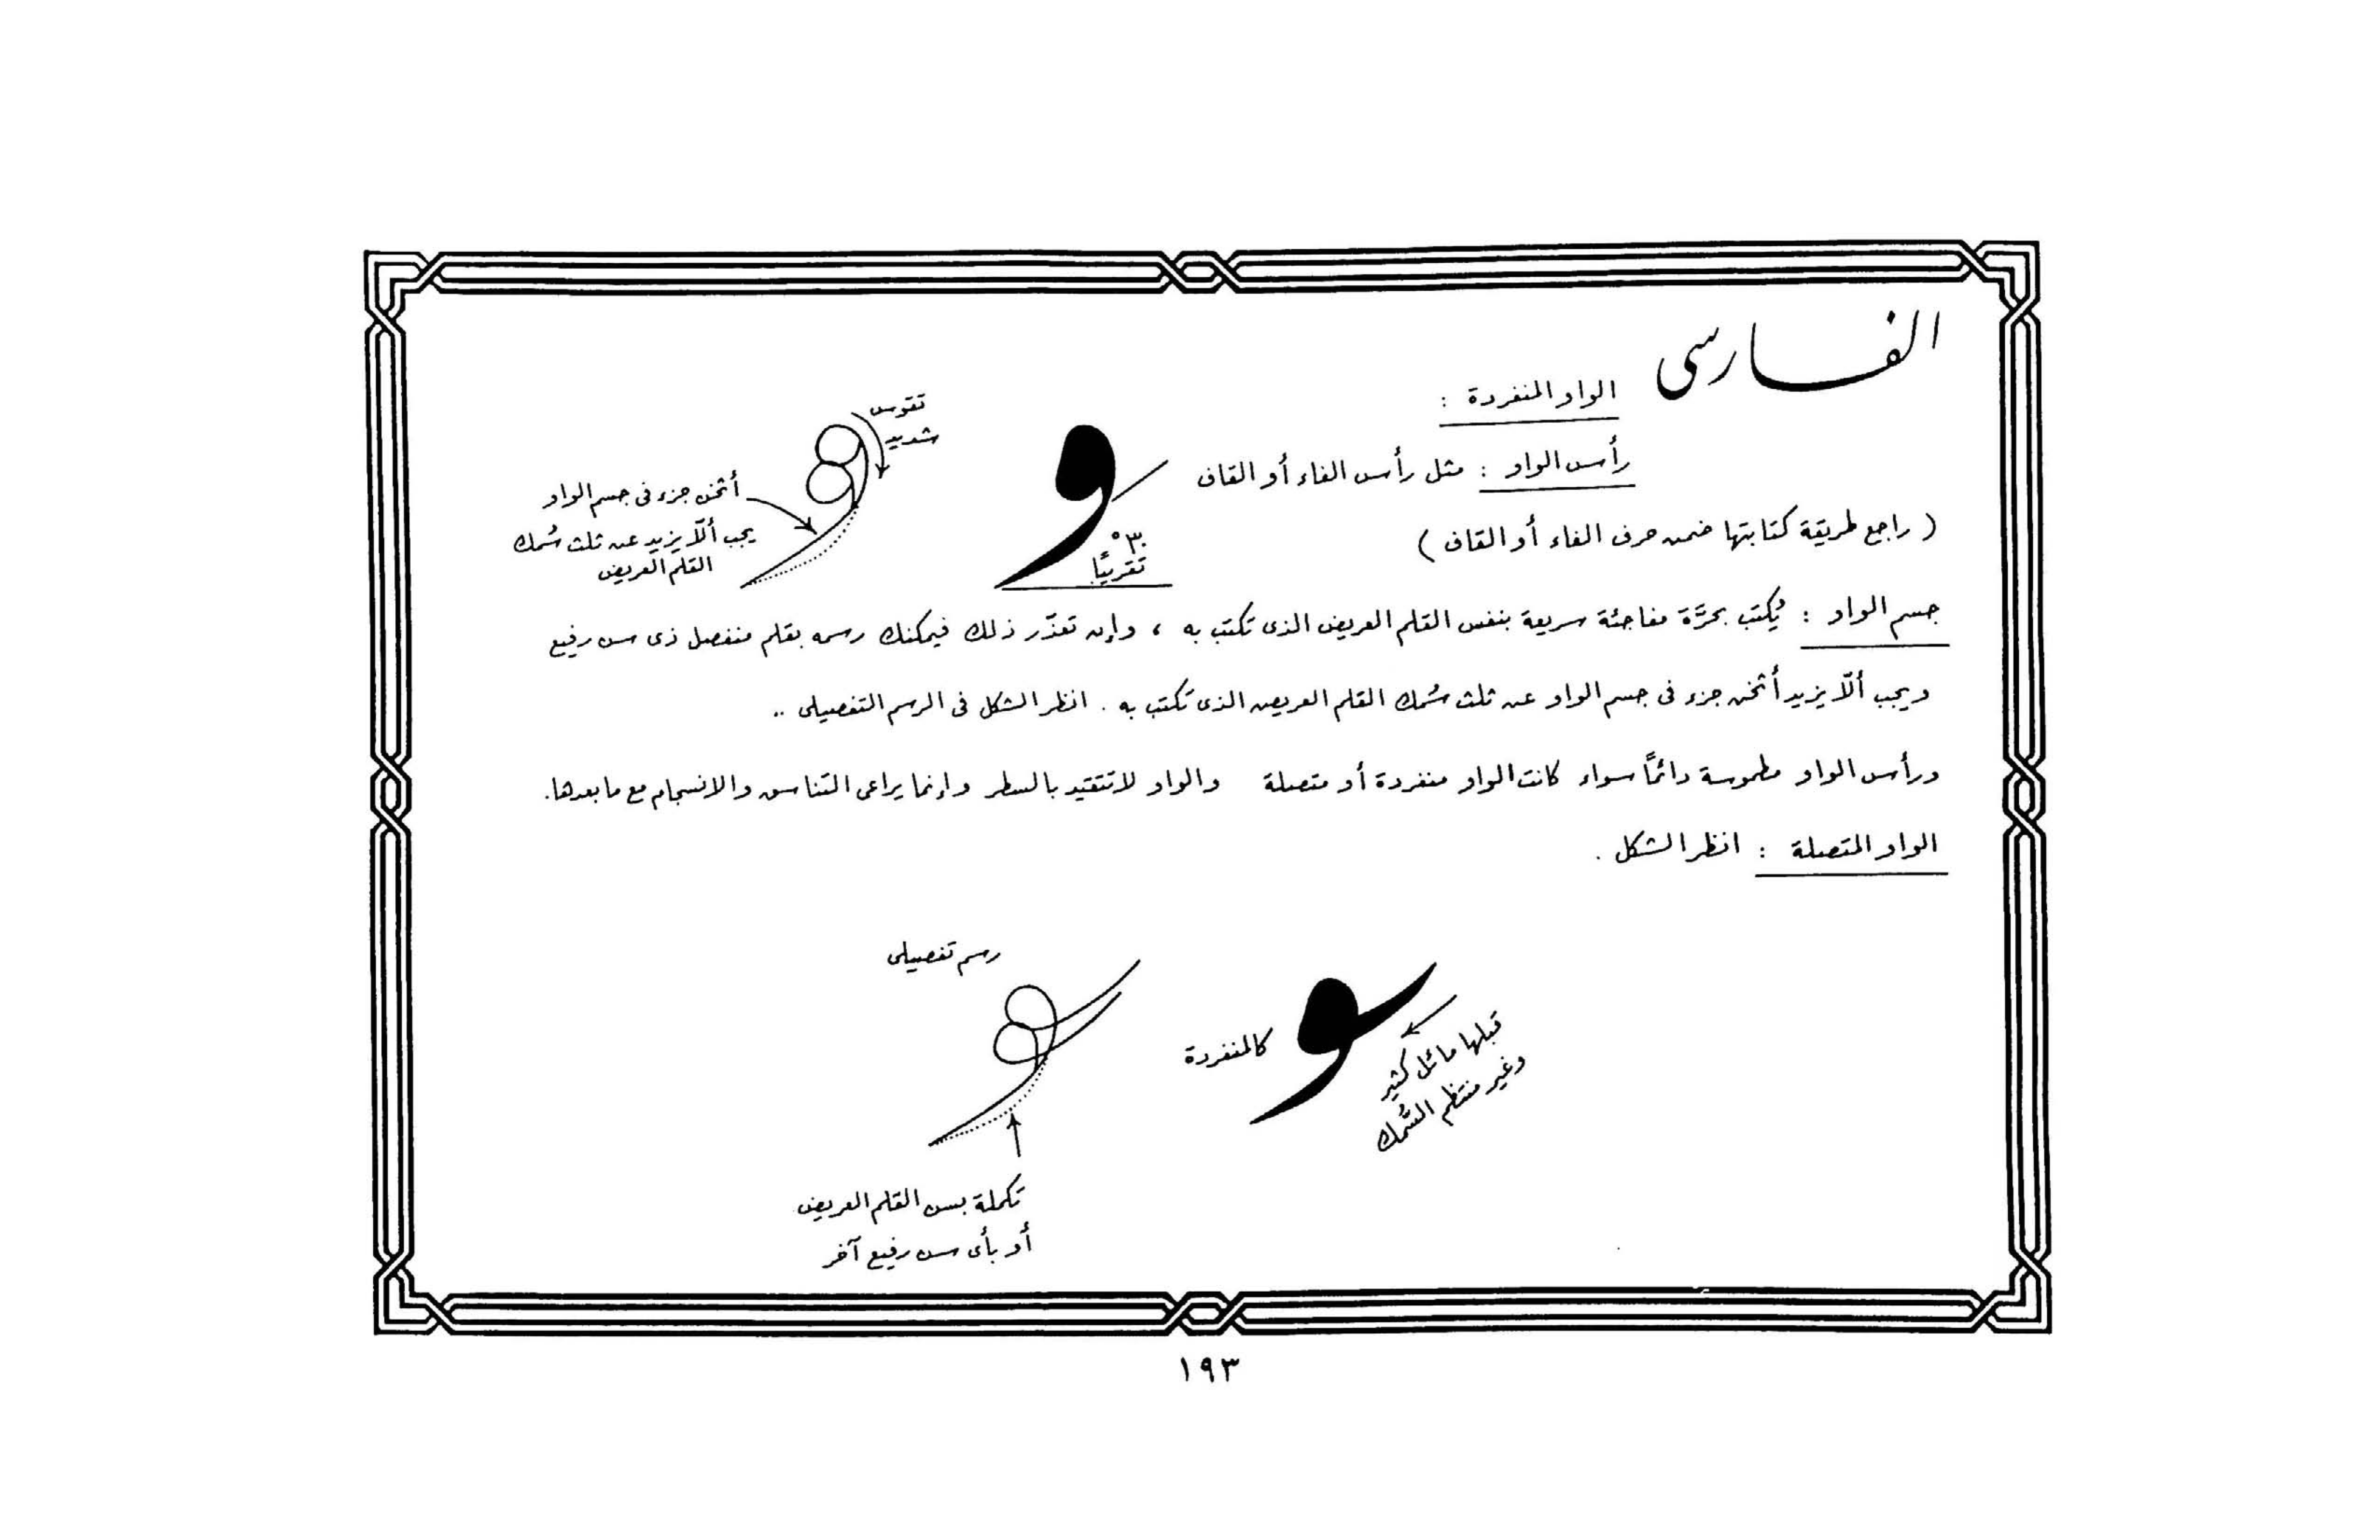 الفارسى
الواو المنفردة :
رأس الواو : مثل رأس الفاء أو القاف
( راجع طريقة كتابتها ضمن حرف الفاء أو القاف )
تقوس
شديد
أثخن جزء فى جسم الواو
يجب ألّا يزيد عن ثلث سُمك
القلم العريض
٣٠°
تقريبًا
جسم الواو : يُكتب بحرَّة مفاجئة سريعة بنفس القلم العريض الذى تكتب به ، وإن تعذّر ذلك فيمكنك رسمه بقلم منفصل ذى سن رفيع
ويجب ألّا يزيد أثخن جزء فى جسم الواو عن ثلث سُمك القلم العريض الذى تكتب به . انظر الشكل فى الرسم التفصيلى ..
ورأس الواو مطموسة دائماً سواء كانت الواو منفردة أو متصلة والواو لا تتقيد بالسطر وإنما يراعى التناسق والانسجام مع ما بعدها.
الواو المتصلة : انظر الشكل .
رسم تفصيلى
كالمنفردة
قبلها مائل كثير
وغير منتظم السُّمك
تكملة بسن القلم العريض
أو بأى سن رفيع آخر
١٩٣